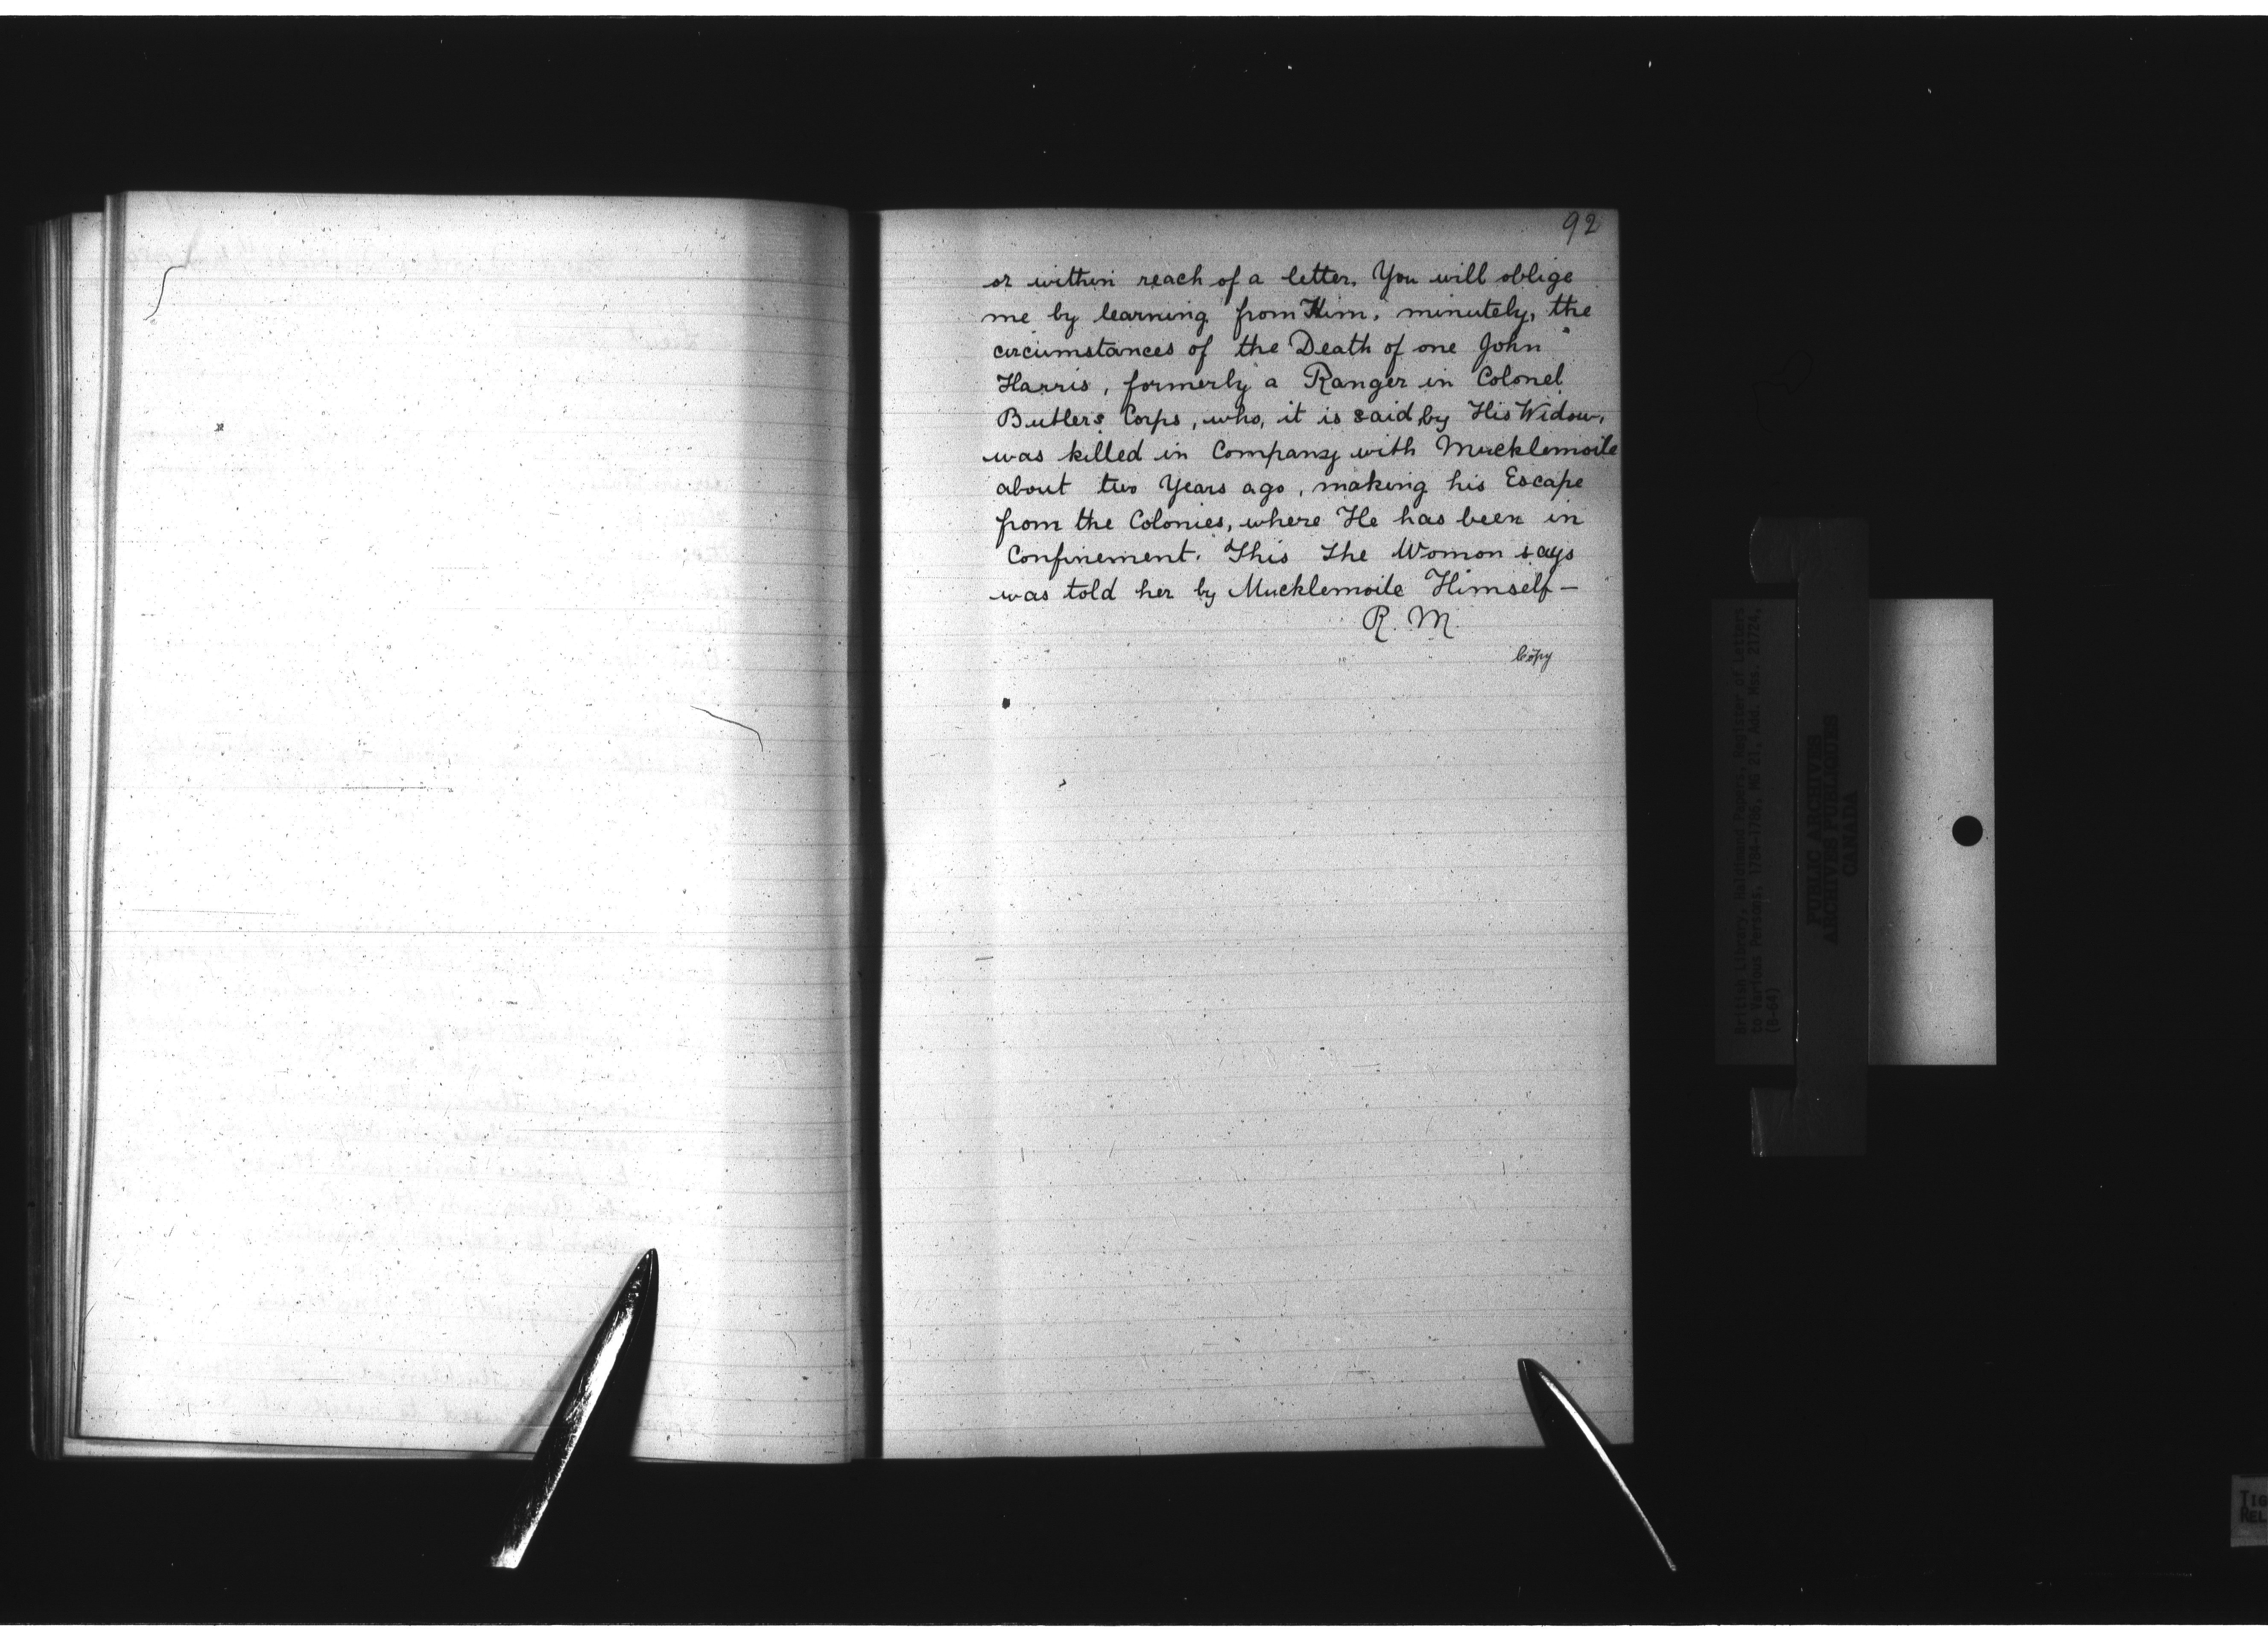 92
or within reach of a letter. You will oblige
me by learning from Him, minutely, the
circumstances of the Death of one John
Harris, formerly a Ranger in Colonel
Butlers Corps, who, it is said by His Widow,
was killed in Company with Mucklemoile
about two Years ago, making his Escape
from the Colonies, where He has been in
Confinement. This The Woman says
was told her by Mucklemoile Himself —
R. M.
Copy
British Library, Haldimand Papers, Register of Letters
to Various Persons, 1784-1786, MG 21, Add. Mss. 21724,
(B-64)
PUBLIC ARCHIVES
ARCHIVES PUBLIQUES
CANADA
TIG
REL